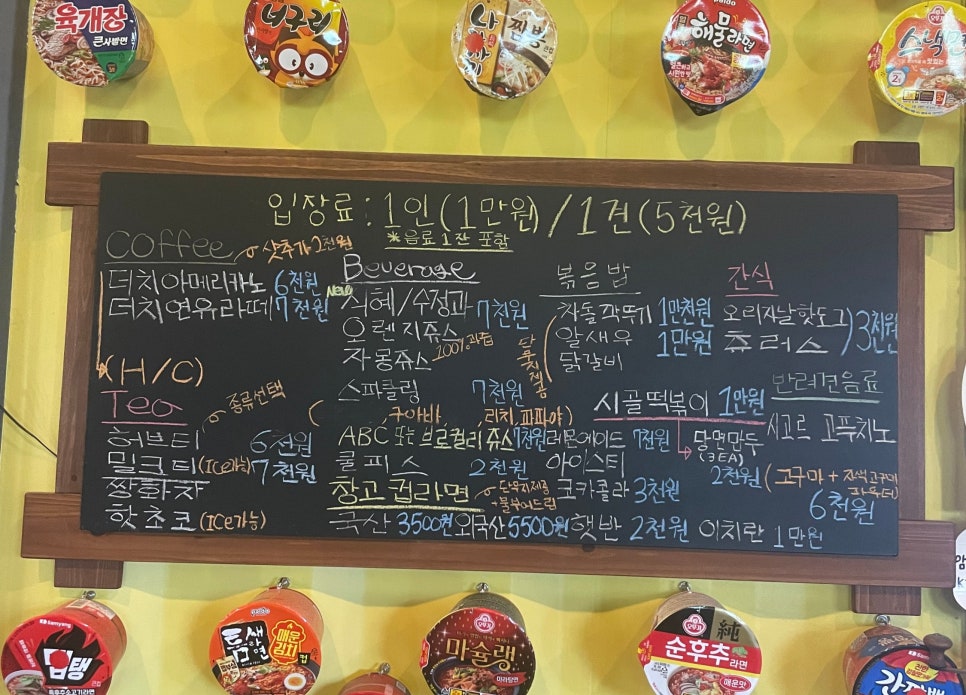 육개장
큰사발면
너구리
나가사끼
짬뽕
paldo
해물라면
오뚜기
스낵면
입장료 : 1인(1만원) / 1견(5천원)
*음료 1잔 포함
Coffee
샷추가 1천원
더치아메리카노 6천원
더치연유라떼 7천원
(H/C)
Tea
종류선택
허브티 6천원
밀크티 (ICe가능) 7천원
쌍화차
핫초코 (ICe가능)
Beverage
New
식혜/수정과 7천원
오렌지쥬스
자몽쥬스 100%과즙
스파클링 7천원
(구아바, 리치, 파파야)
ABC 또는 브로컬리쥬스 7천원
레몬에이드 7천원
쿨피스 2천원
아이스티
코카콜라 3천원
창고컵라면
단무지제공
+물부어드림
국산 3500원 외국산 5500원 햇반 2천원 이치란 1만원
볶음밥
단무지제공
차돌깍뚜기 1만천원
알새우 1만원
닭갈비
시골떡볶이 1만원
납면만두
(3EA)
2천원
간식
오리지날핫도그
츄러스
3천원
반려견음료
시고르 고푸치노
(고구마 +
6천원
Samyang
맵탱
paldo
틈새라면
매운김치
컵
오뚜기
마슐랭
마라탕면
오뚜기
純
순후추
라면
매운맛
오뚜기